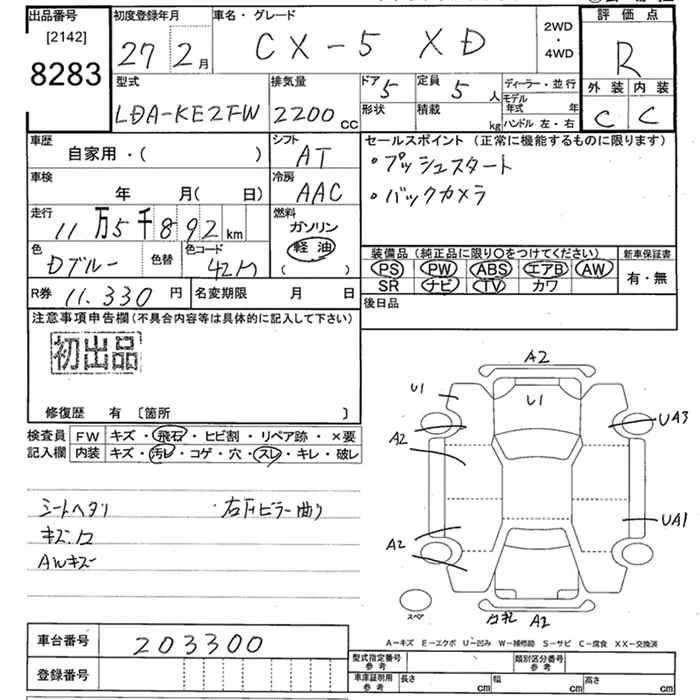 出品番号
[2142]
8283
初度登録年月
27 2 月
車名・グレード
CX-5 XD
2WD
・
4WD
評価点
R
外装 内装
C C
型式
LDA-KE2FW
排気量
2200 cc
ドア 5
形状
定員 5 人
積載 kg
ディーラー・並行
モデル年式 年
ハンドル 左・右
車歴
自家用・( )
シフト
AT
セールスポイント (正常に機能するものに限ります)
・プッシュスタート
・バックカメラ
車検
年 月( 日)
冷房
AAC
走行
11万5千892 km
燃料
ガソリン
軽油
( )
色
Dブルー
色替
色コード
42M
装備品 (純正品に限り○をつけてください)
PS PW ABS エアB AW
SR ナビ TV カワ
新車保証書
有・無
R券 11.330 円
名変期限 月 日
後日品
注意事項申告欄(不具合内容等は具体的に記入して下さい)
初出品
修復歴 有 〔箇所 〕
検査員
記入欄
FW キズ・飛石・ヒビ割・リペア跡・×要
内装 キズ・汚レ・コゲ・穴・スレ・キレ・破レ
シートヘタリ
右下ピラー曲り
AWキズ
A2
U1
U1
UA3
A2
UA1
A2
スペア
A2
A-キズ E-エクボ U-凹み W-補修跡 S-サビ C-腐食 XX-交換済
車台番号 203300
登録番号
型式指定番号
参考
類別区分番号
参考
車庫証明用
参考
長さ cm
幅 cm
高さ cm